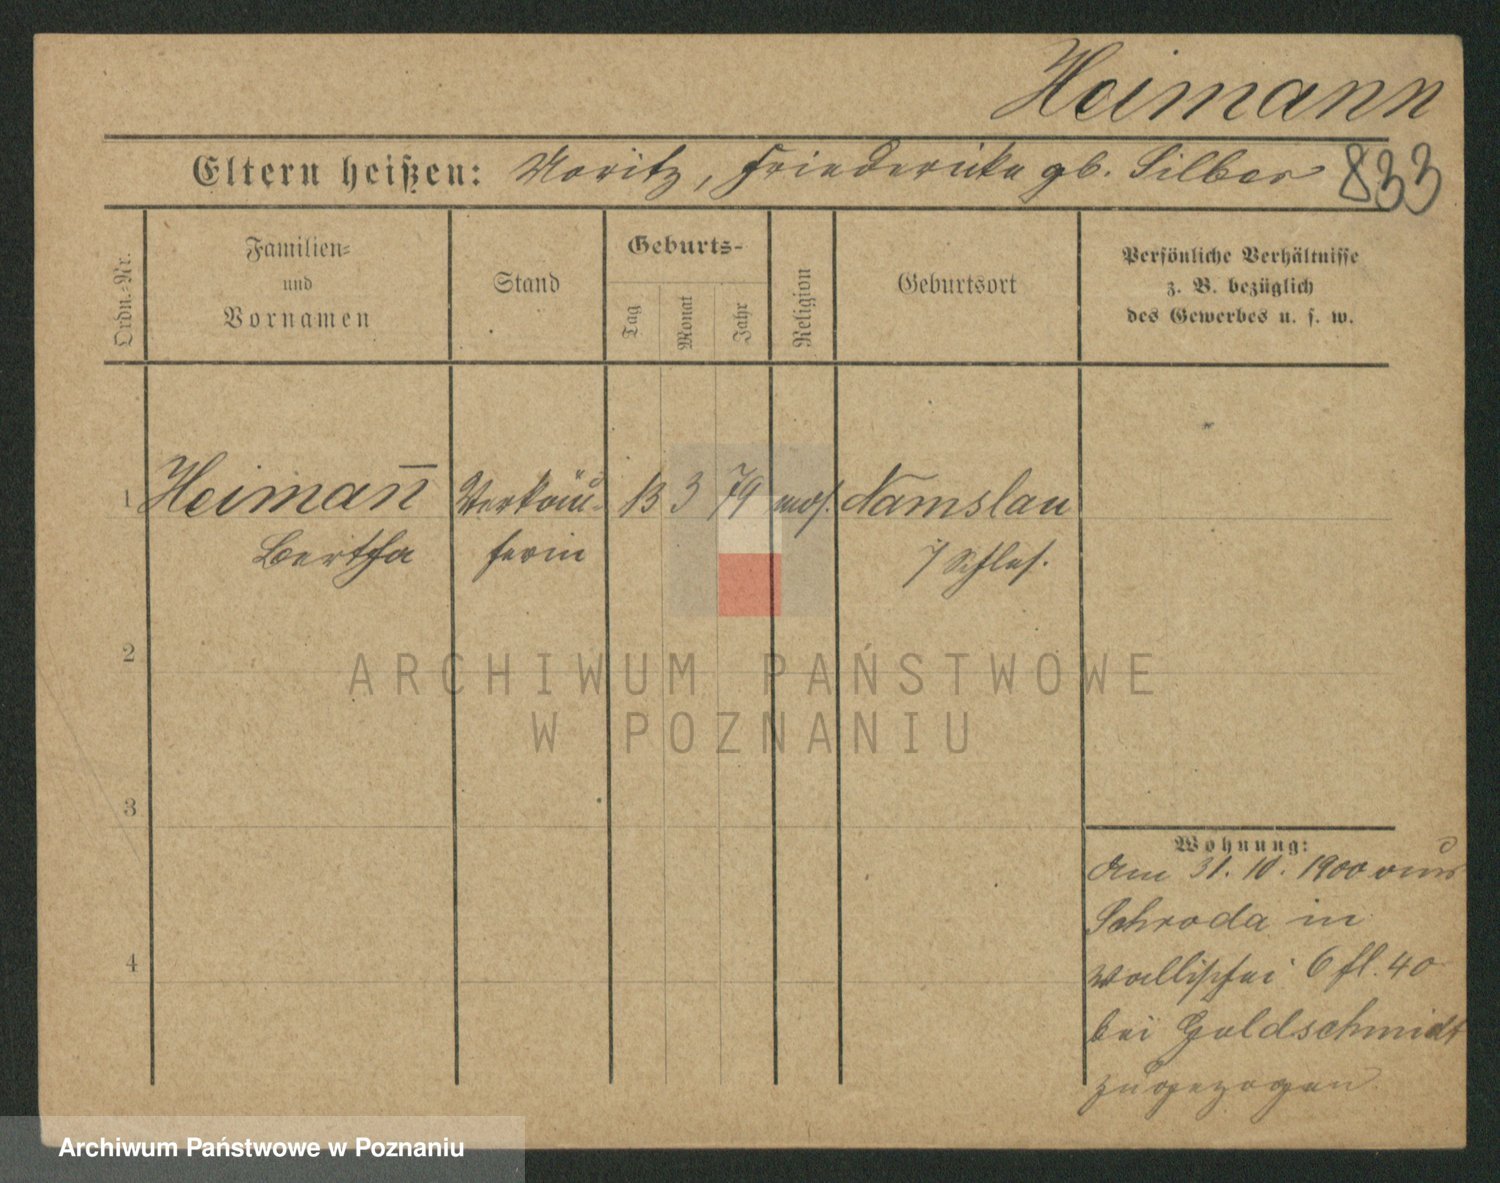 Heimann
Eltern heißen: Moritz, Friedericke gb. Silber 833
Ordn.-Nr.
Familien- und Vornamen
Stand
Geburts-
Tag
Monat
Jahr
Religion
Geburtsort
Persönliche Verhältnisse
z. B. bezüglich
des Gewerbes u. s. w.
1 Heiman̅ Verkäu- 13 3 79 mos. Namslau
Bertha ferin i/ Schles.
2
3
4
Wohnung:
Am 31. 10. 1900 aus
Schroda in
Wallischei 6 fl. 40
bei Goldschmidt
zugezogen
ARCHIWUM PAŃSTWOWE
W POZNANIU
Archiwum Państwowe w Poznaniu